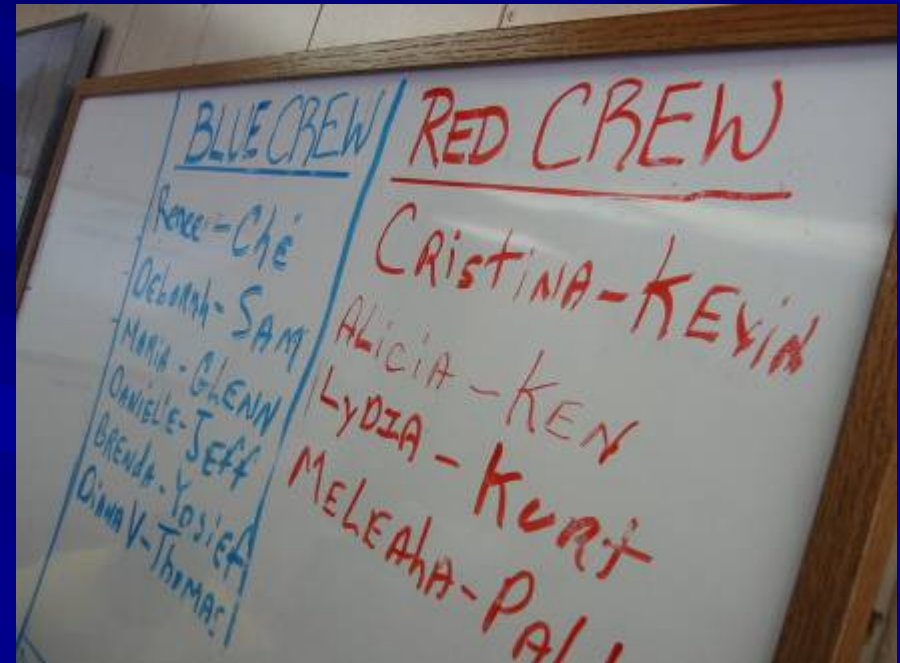 BLUE CREW
Renee - Ché
Deborah - SAM
Maria - GLENN
DANIELLE - JEFF
BRENDA - Yosief
Diana V - Thomas
RED CREW
CRistiNA - KEViN
ALiciA - KEN
LyDIA - KURt
MELEAhA -